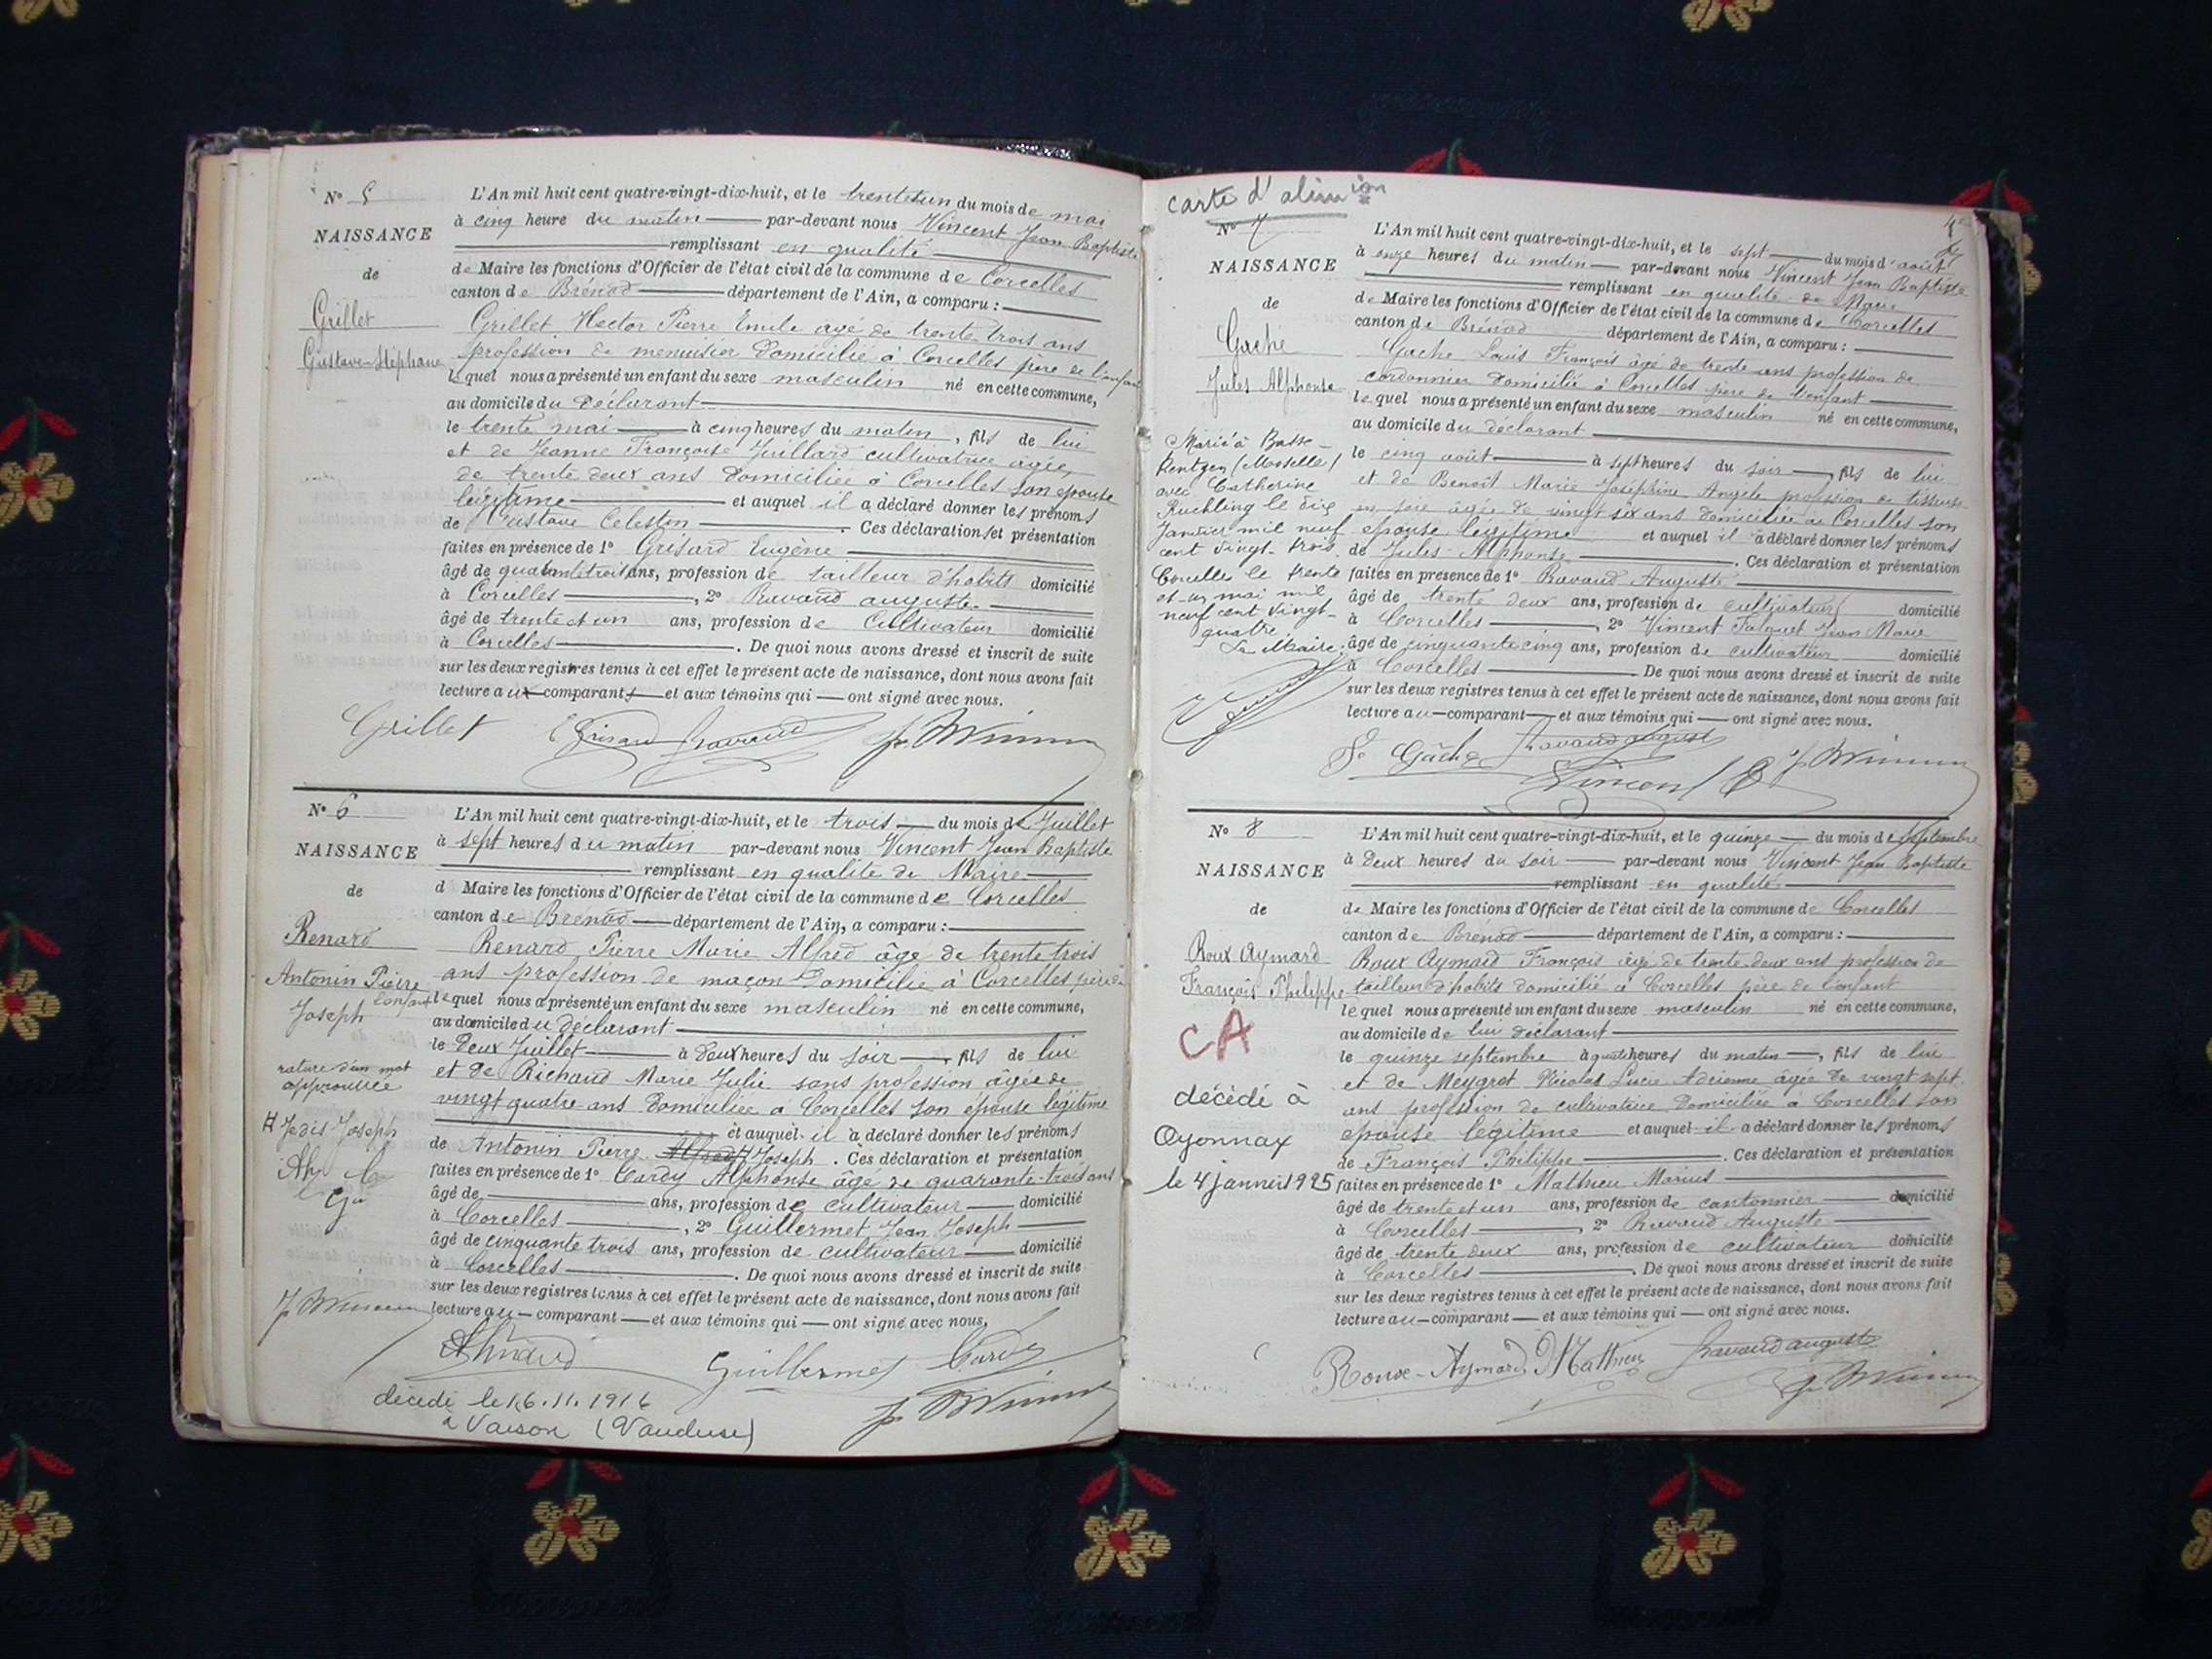 N° 5
NAISSANCE
de
Grillet
Gustave-Stéphane
L'An mil huit cent quatre-vingt-dix-huit, et le trente et un du mois de mai
à cinq heure du matin par-devant nous Vincent Jean Baptiste
remplissant en qualité
de Maire les fonctions d'Officier de l'état civil de la commune de Corcelles
canton de Brénod département de l'Ain, a comparu :
Grillet Hector Pierre Emile âgé de trente trois ans
profession de menuisier domicilié à Corcelles père de l'enfant
lequel nous a présenté un enfant du sexe masculin né en cette commune,
au domicile du déclarant
le trente mai à cinq heures du matin, fils de lui
et de Jeanne Françoise Juillard cultivatrice âgée
de trente deux ans domiciliée à Corcelles son épouse
légitime et auquel il a déclaré donner les prénoms
de Gustave Celeston. Ces déclaration et présentation
faites en présence de 1° Grisard Eugène
âgé de quarante trois ans, profession de tailleur d'habits domicilié
à Corcelles, 2° Ravaud auguste
âgé de trente et un ans, profession de Cultivateur domicilié
à Corcelles. De quoi nous avons dressé et inscrit de suite
sur les deux registres tenus à cet effet le présent acte de naissance, dont nous avons fait
lecture aux comparants et aux témoins qui ont signé avec nous.
Grillet Grisard Ravaud
N° 6
NAISSANCE
de
Renard
Antonin Pierre
Joseph
rature d'un mot
approuvée
L'An mil huit cent quatre-vingt-dix-huit, et le trois du mois de Juillet
à sept heures du matin par-devant nous Vincent Jean Baptiste
remplissant en qualité de Maire
d Maire les fonctions d'Officier de l'état civil de la commune de Corcelles
canton de Brénod département de l'Ain, a comparu :
Renard Pierre Marie Alfred âgé de trente trois
ans profession de maçon Domicilié à Corcelles père de
l'enfant lequel nous a présenté un enfant du sexe masculin né en cette commune,
au domicile du déclarant
le Deux Juillet à deux heures du soir, fils de lui
et de Richaud Marie Julie sans profession âgée de
vingt quatre ans Domiciliée à Corcelles son épouse légitime
et auquel il a déclaré donner les prénoms
de Antonin Pierre Alfred Joseph. Ces déclaration et présentation
faites en présence de 1° Cardy Alphonse âgé de quarante-trois ans
âgé de ans, profession de cultivateur domicilié
à Corcelles, 2° Guillermet Jean Joseph
âgé de cinquante trois ans, profession de cultivateur domicilié
à Corcelles. De quoi nous avons dressé et inscrit de suite
sur les deux registres tenus à cet effet le présent acte de naissance, dont nous avons fait
lecture au comparant et aux témoins qui ont signé avec nous.
Guillermet Cardy
décédé le 16.11.1916
à Vaison (Vaucluse)
carte d'alim ion
N° 7
NAISSANCE
de
Gache
Jules Alphonse
Marié à Basse-
Rentgen (Moselle)
avec Catherine
Ruchling le dix
Janvier mil neuf
cent vingt-trois.
Corcelles le trente
et un mai mil
neuf cent vingt-
quatre
Le Maire :
L'An mil huit cent quatre-vingt-dix-huit, et le sept du mois d'août
à onze heures du matin par-devant nous Vincent Jean Baptiste
remplissant en qualité de Maire
de Maire les fonctions d'Officier de l'état civil de la commune de Corcelles
canton de Brénod département de l'Ain, a comparu :
Gache Louis François âgé de trente ans profession de
cordonnier domicilié à Corcelles père de l'enfant
lequel nous a présenté un enfant du sexe masculin né en cette commune,
au domicile du déclarant
le cinq août à sept heures du soir, fils de lui
et de Benoit Marie Joséphine Angèle profession de tisseuse
en soie âgée de vingt six ans domiciliée à Corcelles son
épouse légitime et auquel il a déclaré donner les prénoms
de Jules Alphonse. Ces déclaration et présentation
faites en présence de 1° Ravaud Auguste
âgé de trente deux ans, profession de cultivateur domicilié
à Corcelles, 2° Vincent Falquet Jean Marie
âgé de cinquante cinq ans, profession de cultivateur domicilié
à Corcelles. De quoi nous avons dressé et inscrit de suite
sur les deux registres tenus à cet effet le présent acte de naissance, dont nous avons fait
lecture au comparant et aux témoins qui ont signé avec nous.
Gâche Ravaud august
Vincent
N° 8
NAISSANCE
de
Roux Aymard
François Philippe
CA
décédé à
Oyonnax
L'An mil huit cent quatre-vingt-dix-huit, et le quinze du mois de septembre
à deux heures du soir par-devant nous Vincent Jean Baptiste
remplissant en qualité
de Maire les fonctions d'Officier de l'état civil de la commune de Corcelles
canton de Brénod département de l'Ain, a comparu :
Roux Aymard François âgé de trente-deux ans profession de
tailleur d'habits domicilié à Corcelles père de l'enfant
lequel nous a présenté un enfant du sexe masculin né en cette commune,
au domicile de lui déclarant
le quinze septembre à quatre heures du matin, fils de lui
et de Meygret Nicolas Lucie Adrienne âgée de vingt sept
ans profession de cultivatrice Domiciliée à Corcelles son
épouse légitime et auquel il a déclaré donner les prénoms
de François Philippe. Ces déclaration et présentation
faites en présence de 1° Mathieu Marius
âgé de trente et un ans, profession de cantonnier domicilié
à Corcelles, 2° Ravaud Auguste
âgé de trente deux ans, profession de cultivateur domicilié
à Corcelles. De quoi nous avons dressé et inscrit de suite
sur les deux registres tenus à cet effet le présent acte de naissance, dont nous avons fait
lecture au comparant et aux témoins qui ont signé avec nous.
Roux-Aymard Mathieu Ravaud auguste